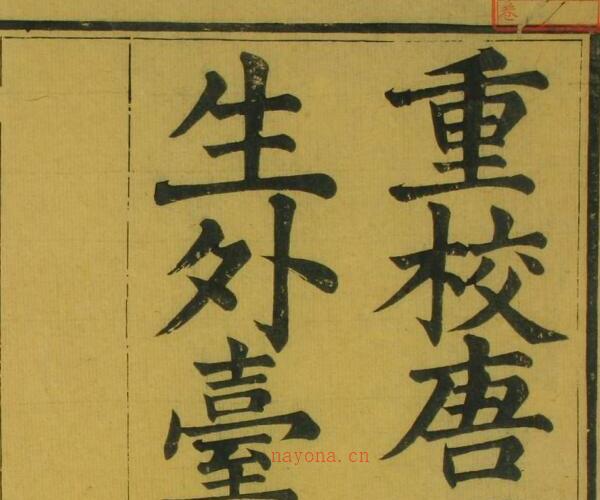 重校唐
生外臺
卷
nayona.cn